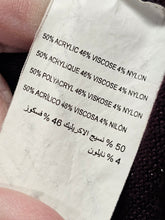 50% ACRYLIC 46% VISCOSE 4% NYLON
50% ACRYLIQUE 46% VISCOSE 4% NYLON
50% POLYACRYL 46% VISKOSE 4% NYLON
50% ACRÍLICO 46% VISCOSA 4% NILÓN
50 % نسيج الاكريليك 46 % فسكوز
4 % نايلون